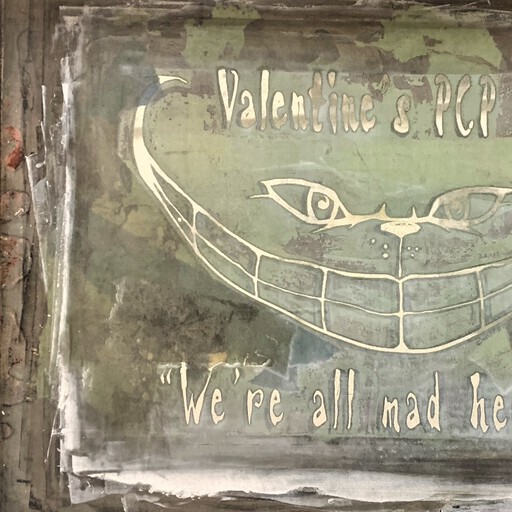 Valentine's PCP
"We're all mad he